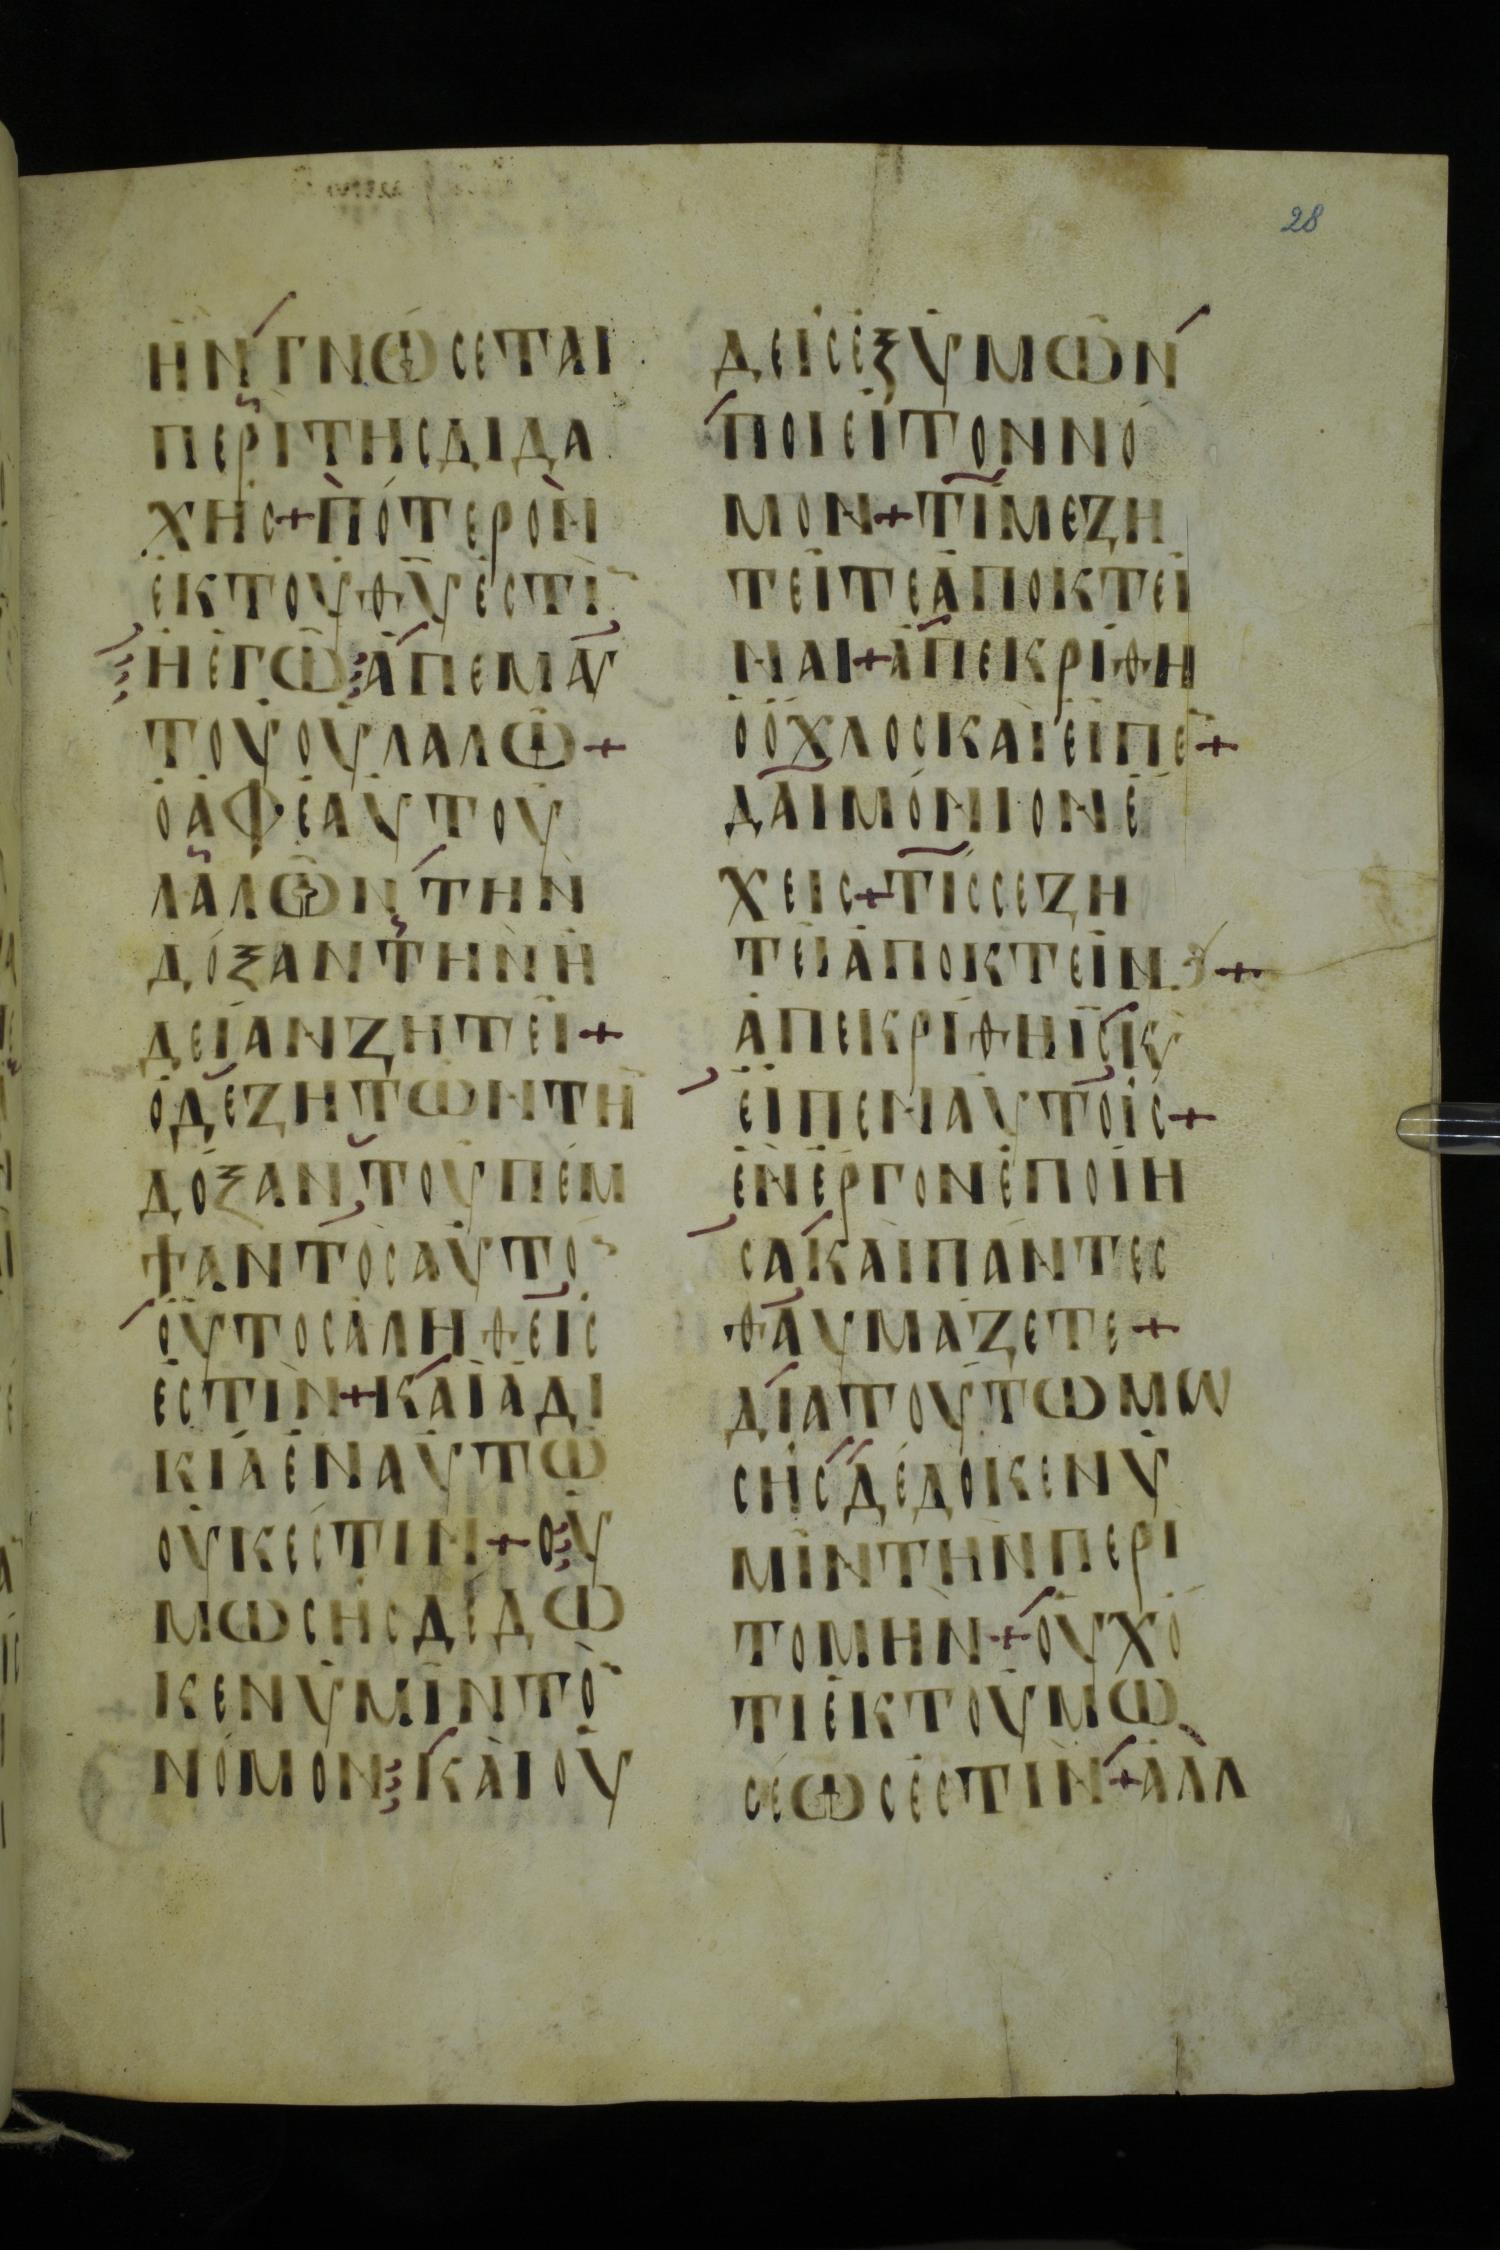 28
ΗΝ ΓΝΩΣΕΤΑΙ
ΠΕΡΙΤΗΣΔΙΔΑ
ΧΗΣ+ΠΟΤΕΡΟΝ
ΕΚΤΟΥΘΥΕΣΤΙ
ΗΕΓΩΑΠΕΜΑΥ
ΤΟΥΟΥΛΑΛΩ+
ΟΑΦΕΑΥΤΟΥ
ΛΑΛΩΝΤΗΝ
ΔΟΞΑΝΤΗΝΗ
ΔΕΙΑΝΖΗΤΕΙ+
ΟΔΕΖΗΤΩΝΤΗ
ΔΟΞΑΝΤΟΥΠΕΜ
ΨΑΝΤΟΣΑΥΤΟ
ΟΥΤΟΣΑΛΗΘΕΙΣ
ΕΣΤΙΝ+ΚΑΙΑΔΙ
ΚΙΑΕΝΑΥΤΩ
ΟΥΚΕΣΤΙΝ+ΟΥ
ΜΩΣΗΣΔΕΔΩ
ΚΕΝΥΜΙΝΤΟ
ΝΟΜΟΝΚΑΙΟΥ
ΔΕΙΣΕΞΥΜΩΝ
ΠΟΙΕΙΤΟΝΝΟ
ΜΟΝ+ΤΙΜΕΖΗ
ΤΕΙΤΕΑΠΟΚΤΕΙ
ΝΑΙ+ΑΠΕΚΡΙΘΗ
ΟΟΧΛΟΣΚΑΙΕΙΠΕ+
ΔΑΙΜΟΝΙΟΝΕ
ΧΕΙΣ+ΤΙΣΣΕΖΗ
ΤΕΙΑΠΟΚΤΕΙΝ+
ΑΠΕΚΡΙΘΗΙΣΚ
ΕΙΠΕΝΑΥΤΟΙΣ+
ΕΝΕΡΓΟΝΕΠΟΙΗ
ΣΑΚΑΙΠΑΝΤΕΣ
ΘΑΥΜΑΖΕΤΕ+
ΔΙΑΤΟΥΤΩΜΩ
ΣΗΣΔΕΔΟΚΕΝΥ
ΜΙΝΤΗΝΠΕΡΙ
ΤΟΜΗΝ+ΟΥΧΟ
ΤΙΕΚΤΟΥΜΩ
ΣΕΩΣΕΣΤΙΝ+ΑΛΛ